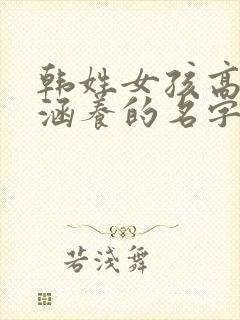 韩姓女孩高
涵养的名字
若浅舞